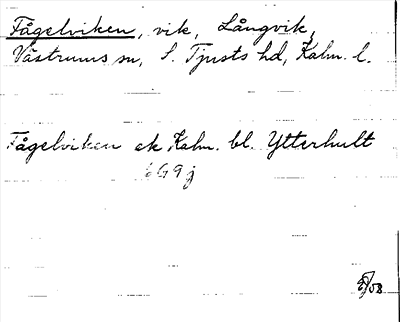 Fågelviken, vik, Långvik,
Västrums sn, S. Tjusts hd, Kalm. l.
Fågelviken ek Kalm. bl. Ytterhult
6G9j